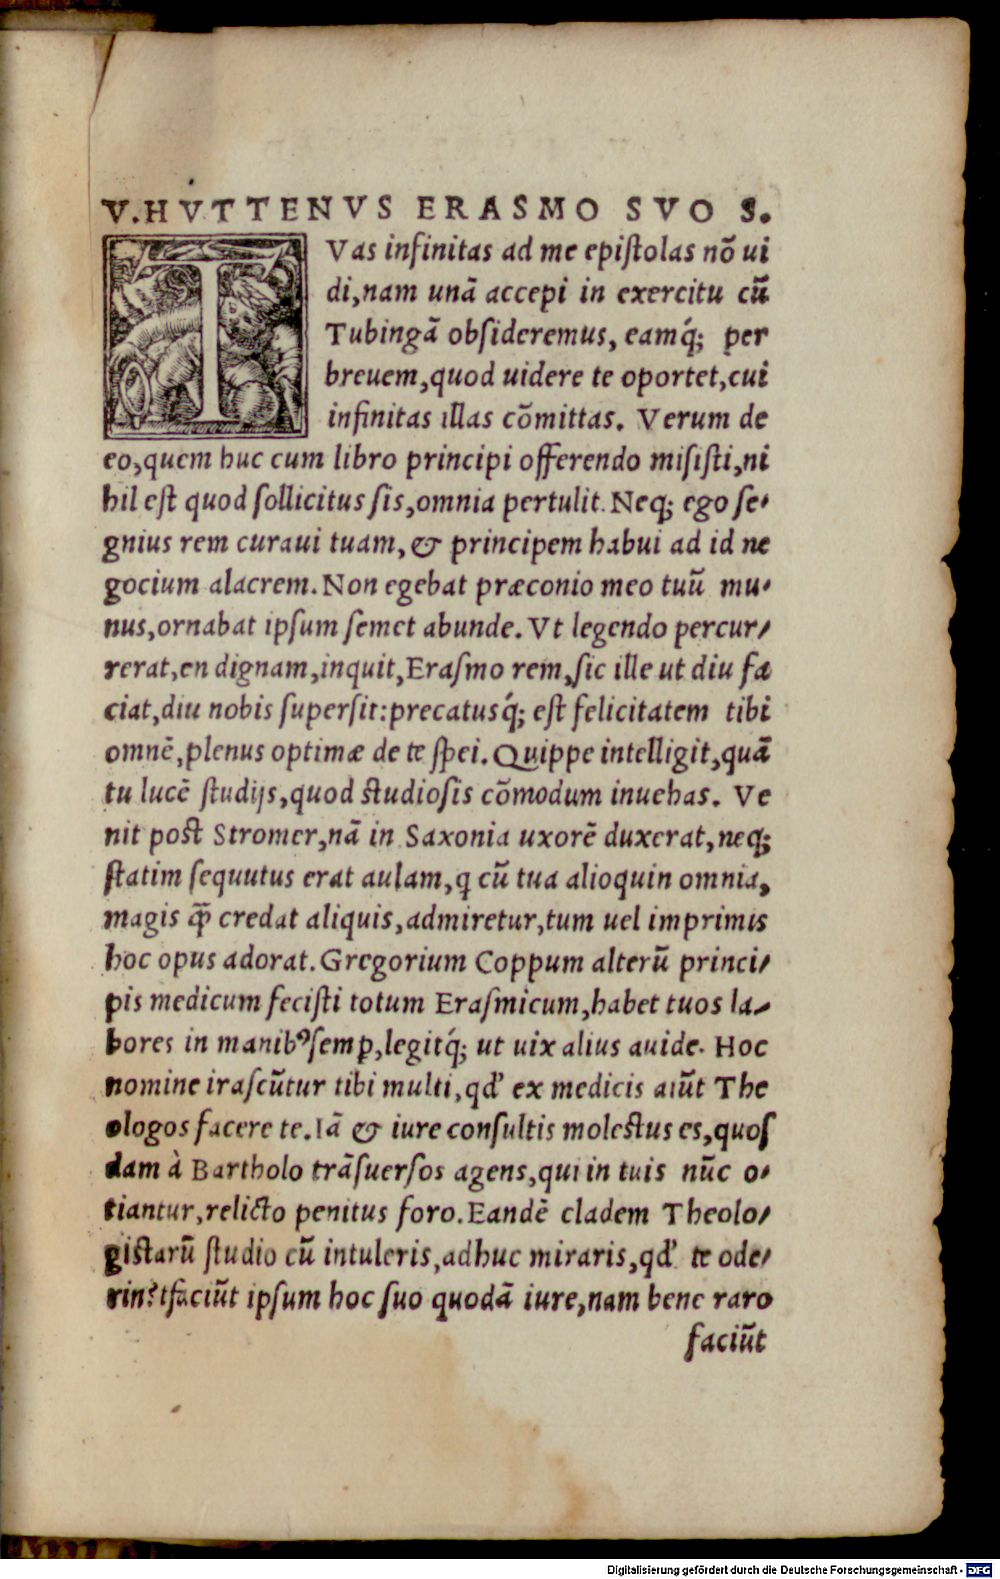 V. HVTTENVS ERASMO SVO S.
TVas infinitas ad me epiſtolas nō ui
di, nam unā accepi in exercitu cū
Tubingā obſideremus, eamq́; per
breuem, quod uidere te oportet, cui
infinitas illas cōmittas. Verum de
eo, quem huc cum libro principi offerendo miſiſti, ni
hil eſt quod ſollicitus ſis, omnia pertulit. Neq; ego ſe-
gnius rem curaui tuam, & principem habui ad id ne
gocium alacrem. Non egebat præconio meo tuū mu-
nus, ornabat ipſum ſemet abunde. Vt legendo percur-
rerat, en dignam, inquit, Eraſmo rem, ſic ille ut diu fa
ciat, diu nobis ſuperſit: precatusq́; eſt felicitatem tibi
omnē, plenus optimæ de te ſpei. Quippe intelligit, quā
tu lucē ſtudijs, quod ſtudioſis cōmodum inuehas. Ve
nit poſt Stromer, nā in Saxonia uxorē duxerat, neq;
ſtatim ſequutus erat aulam, q cū tua alioquin omnia,
magis q̄ꝫ credat aliquis, admiretur, tum uel imprimis
hoc opus adorat. Gregorium Coppum alterū princi-
pis medicum feciſti totum Eraſmicum, habet tuos la-
bores in manibꝰ ſemꝑ, legitq́; ut uix alius auide. Hoc
nomine iraſcūtur tibi multi, qd' ex medicis aiūt The
ologos facere te. Iā & iure conſultis moleſtus es, quoſ
dam à Bartholo trāſuerſos agens, qui in tuis nūc o-
tiantur, relicto penitus foro. Eandē cladem Theolo-
giſtarū ſtudio cū intuleris, adhuc miraris, qd' te ode-
rint? faciūt ipſum hoc ſuo quodā iure, nam bene raro
faciūt
Digitalisierung gefördert durch die Deutsche Forschungsgemeinschaft - DFG